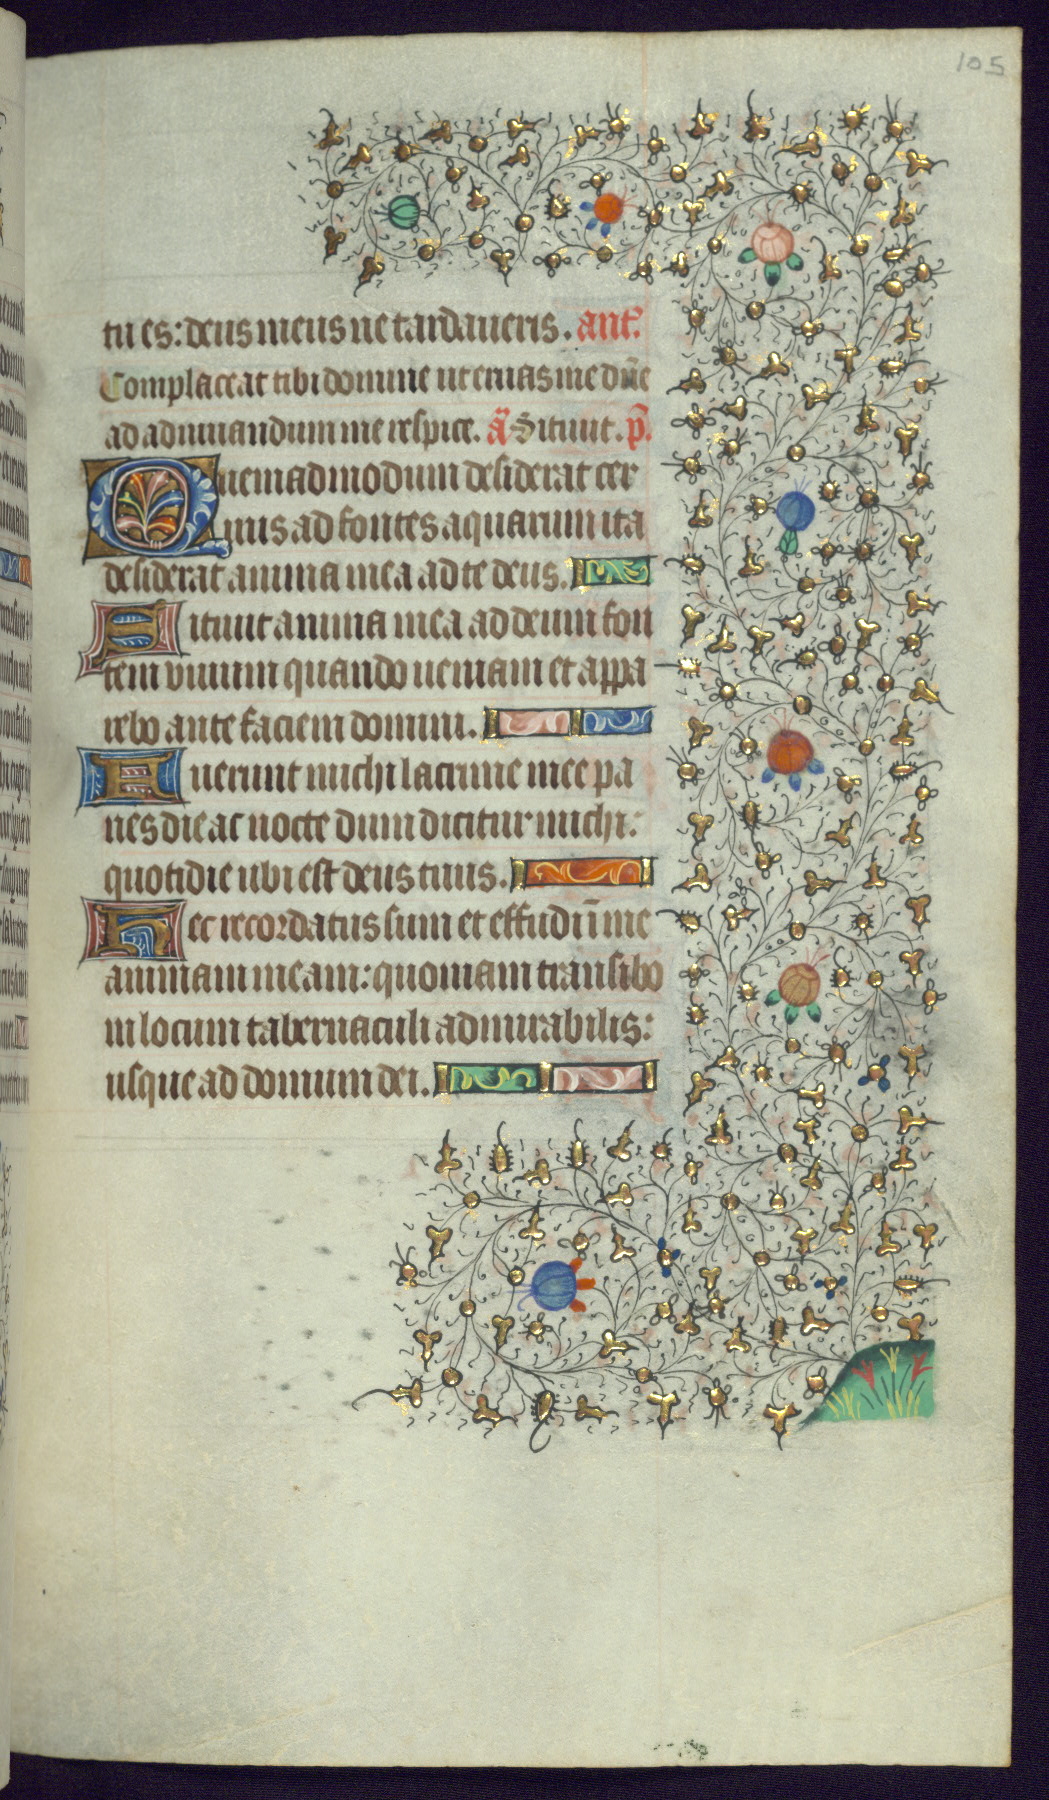 105
tu es: deus meus ne tardaueris. ant.
Complaceat tibi domine ut eruas me dn̄e
ad adiuuandum me respice. ā Sitiuit. p̄.
Quemadmodum desiderat cer
uus ad fontes aquarum ita
desiderat anima mea ad te deus.
Sitiuit anima mea ad deum fon
tem viuum quando ueniam et appa
rebo ante faciem domini.
Fuerunt michi lacrime mee pa
nes die ac nocte dum dicitur michi:
quotidie ubi est deus tuus.
Hec recordatus sum et effudi in̄ me
animam meam: quoniam transibo
in locum tabernaculi admirabilis:
usque ad domum dei.